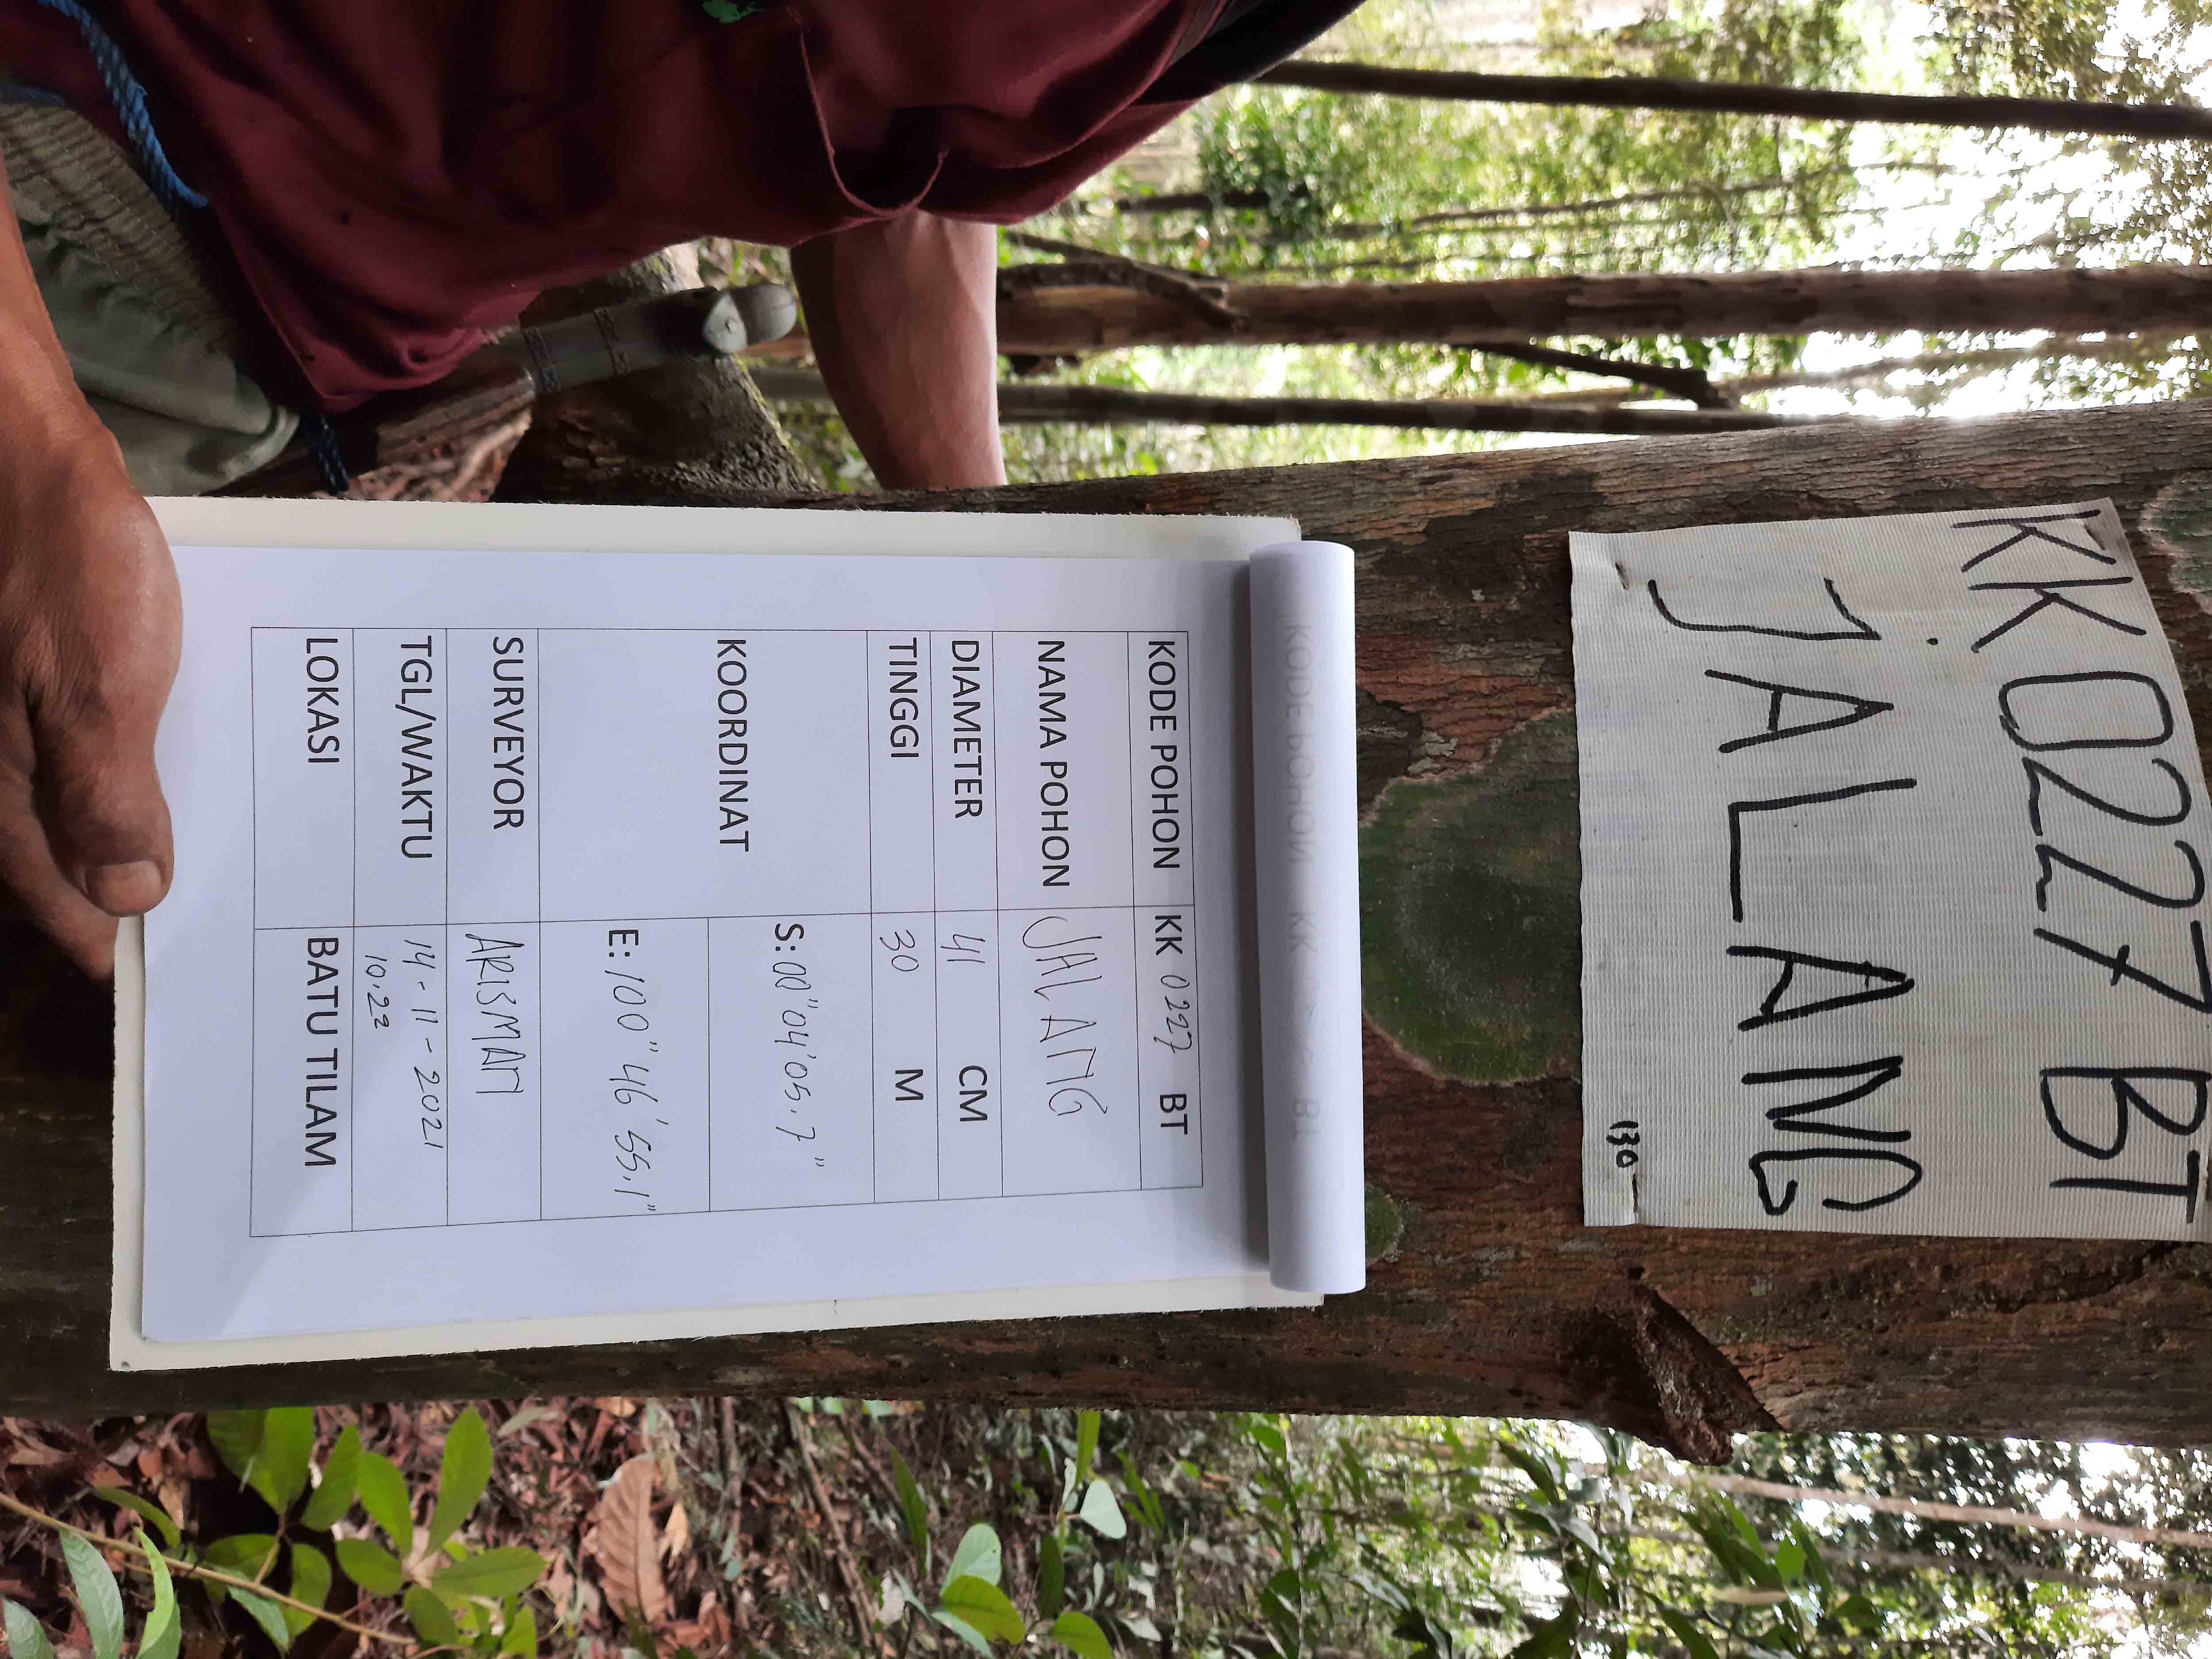 KK 0227 BT
JALANG
130
KODE POHON KK BT
KODE POHON KK 0227 BT
NAMA POHON JALANG
DIAMETER 41 CM
TINGGI 30 M
KOORDINAT S: 00" 04' 05.7"
E: 100" 46' 55.1"
SURVEYOR ARISMAN
TGL/WAKTU 14 - 11 - 2021
10.22
LOKASI BATU TILAM